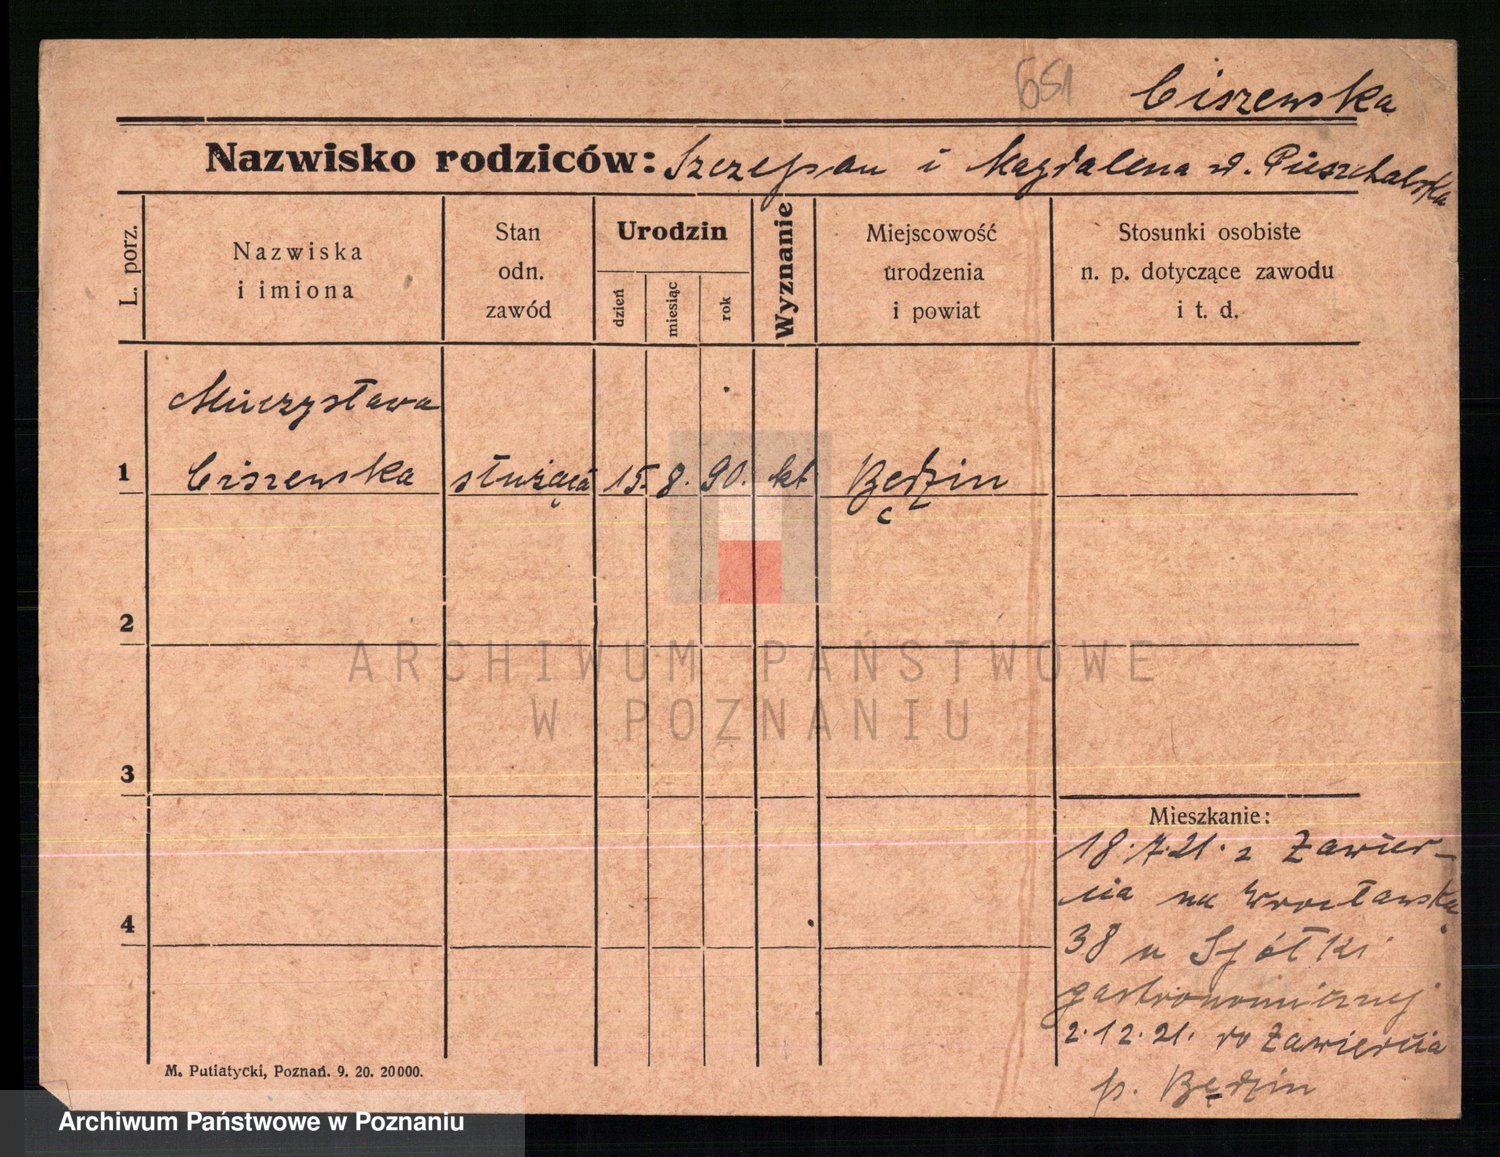 651 Ciszewska
Nazwisko rodziców: Szczepan i Magdalena z d. Pieszchalska
L. porz.
Nazwiska
i imiona
Stan
odn.
zawód
Urodzin
dzień
miesiąc
rok
Wyznanie
Miejscowość
urodzenia
i powiat
Stosunki osobiste
n. p. dotyczące zawodu
i t. d.
Mieczysława
1 Ciszewska służąca 15. 8. 90. kt Będzin
2
3
4
Mieszkanie:
18.7.21. z Zawier-
cia na Wrocławską
38 u Spółki
gastronomicznej
2.12.21. do Zawiercia
p. Będzin
M. Putiatycki, Poznań. 9. 20. 20000.
ARCHIWUM PAŃSTWOWE
W POZNANIU
Archiwum Państwowe w Poznaniu